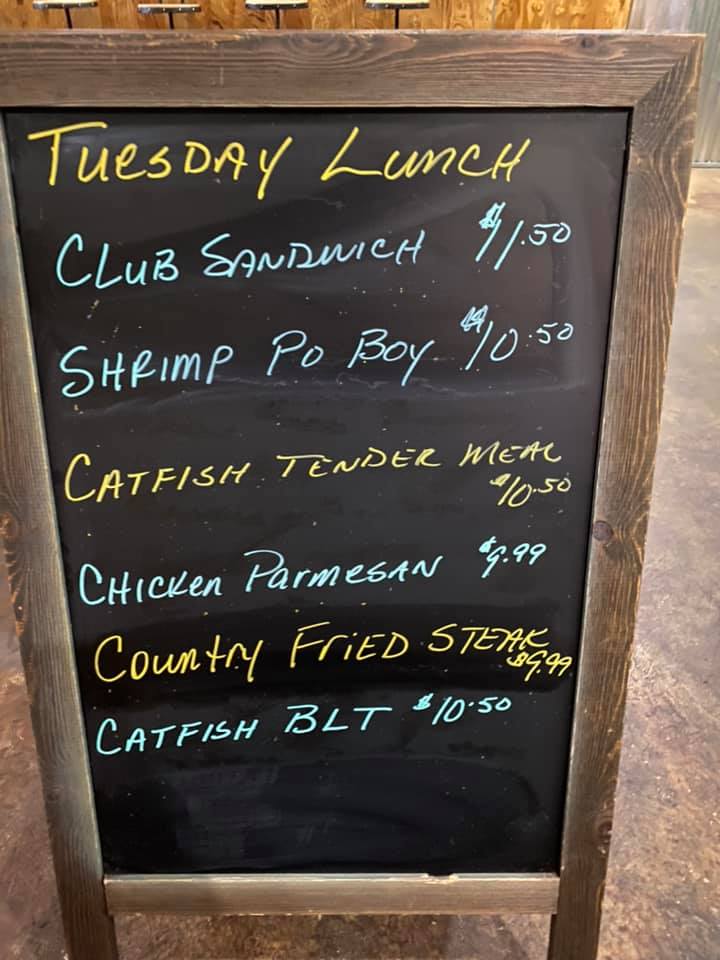 TUESDAY LUNCH
CLUB SANDWICH $11.50
SHRIMP PO BOY $10.50
CATFISH TENDER MEAL
$10.50
CHICKEN PARMESAN $9.99
COUNTRY FRIED STEAK
$9.99
CATFISH BLT $10.50